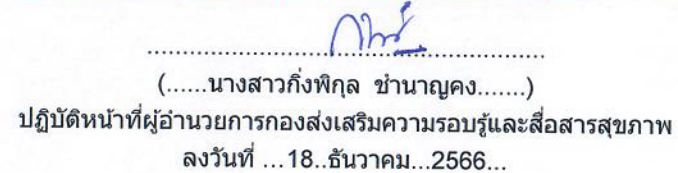 (......นางสาวกิ่งพิกุล ชำนาญคง.......)
ปฏิบัติหน้าที่ผู้อำนวยการกองส่งเสริมความรอบรู้และสื่อสารสุขภาพ
ลงวันที่ ...18..ธันวาคม...2566...